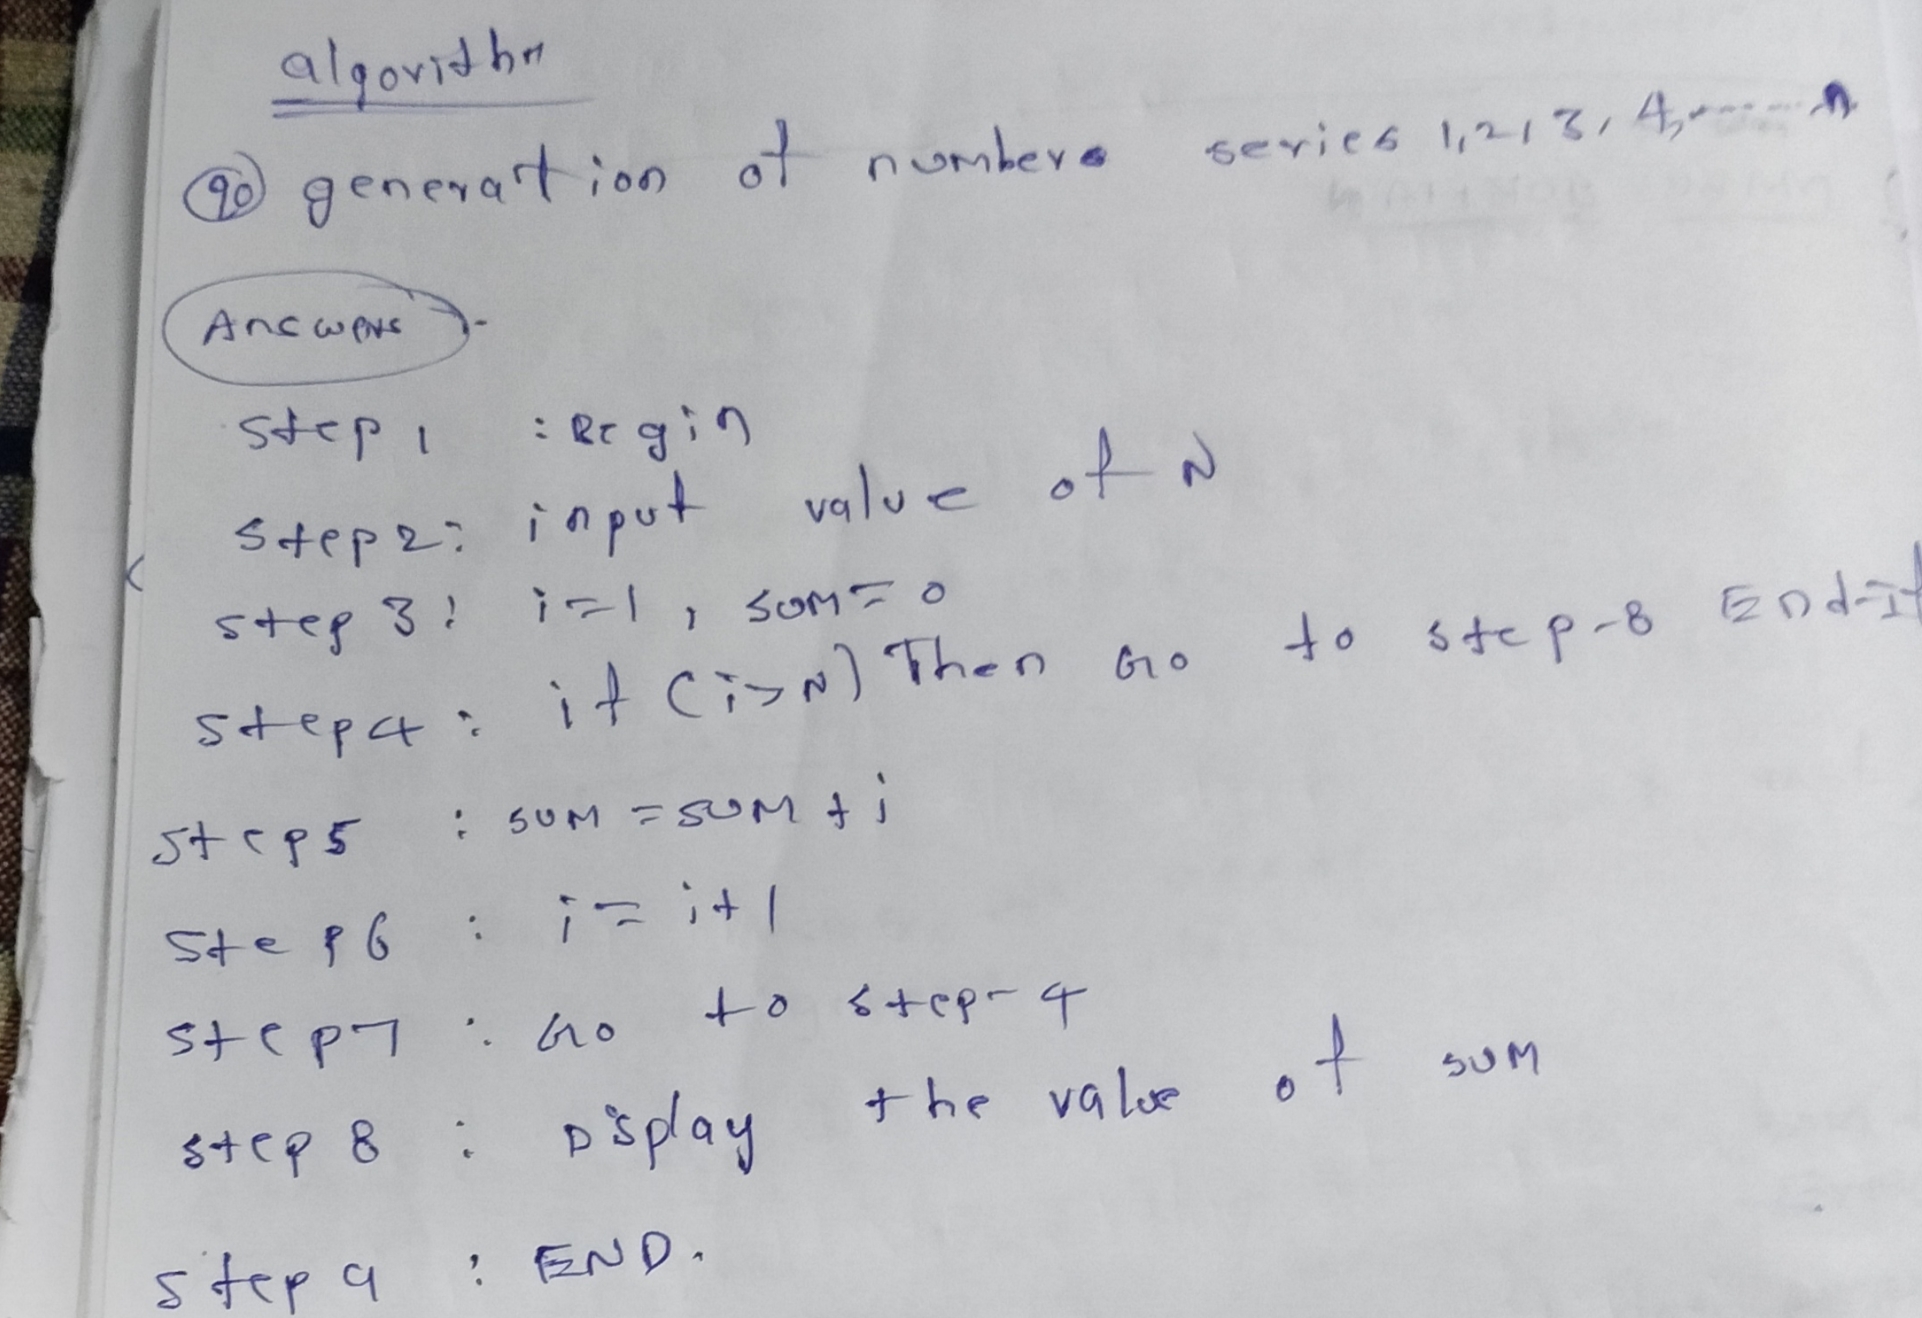 algorithm
90 generation of numbers series 1,2,3,4,------n
Answers :-
step 1 : Begin
step 2: input value of N
step 3: i=1, SUM=0
step 4: if (i>N) Then Go to step-8 End-If
step 5 : SUM = SUM + i
step 6 : i = i+1
step 7 : Go to step-4
step 8 : Display the value of SUM
step 9 : END.